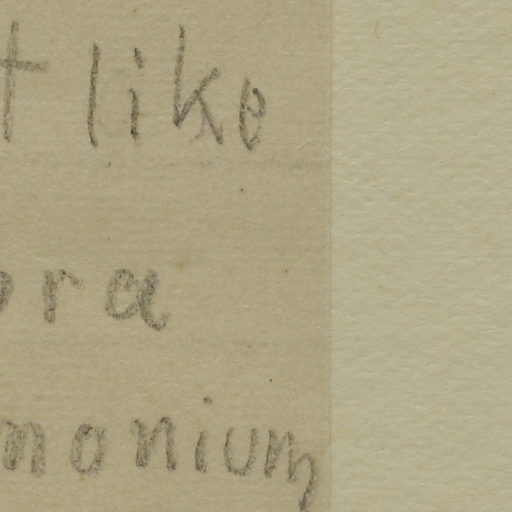 t like
ora
monium